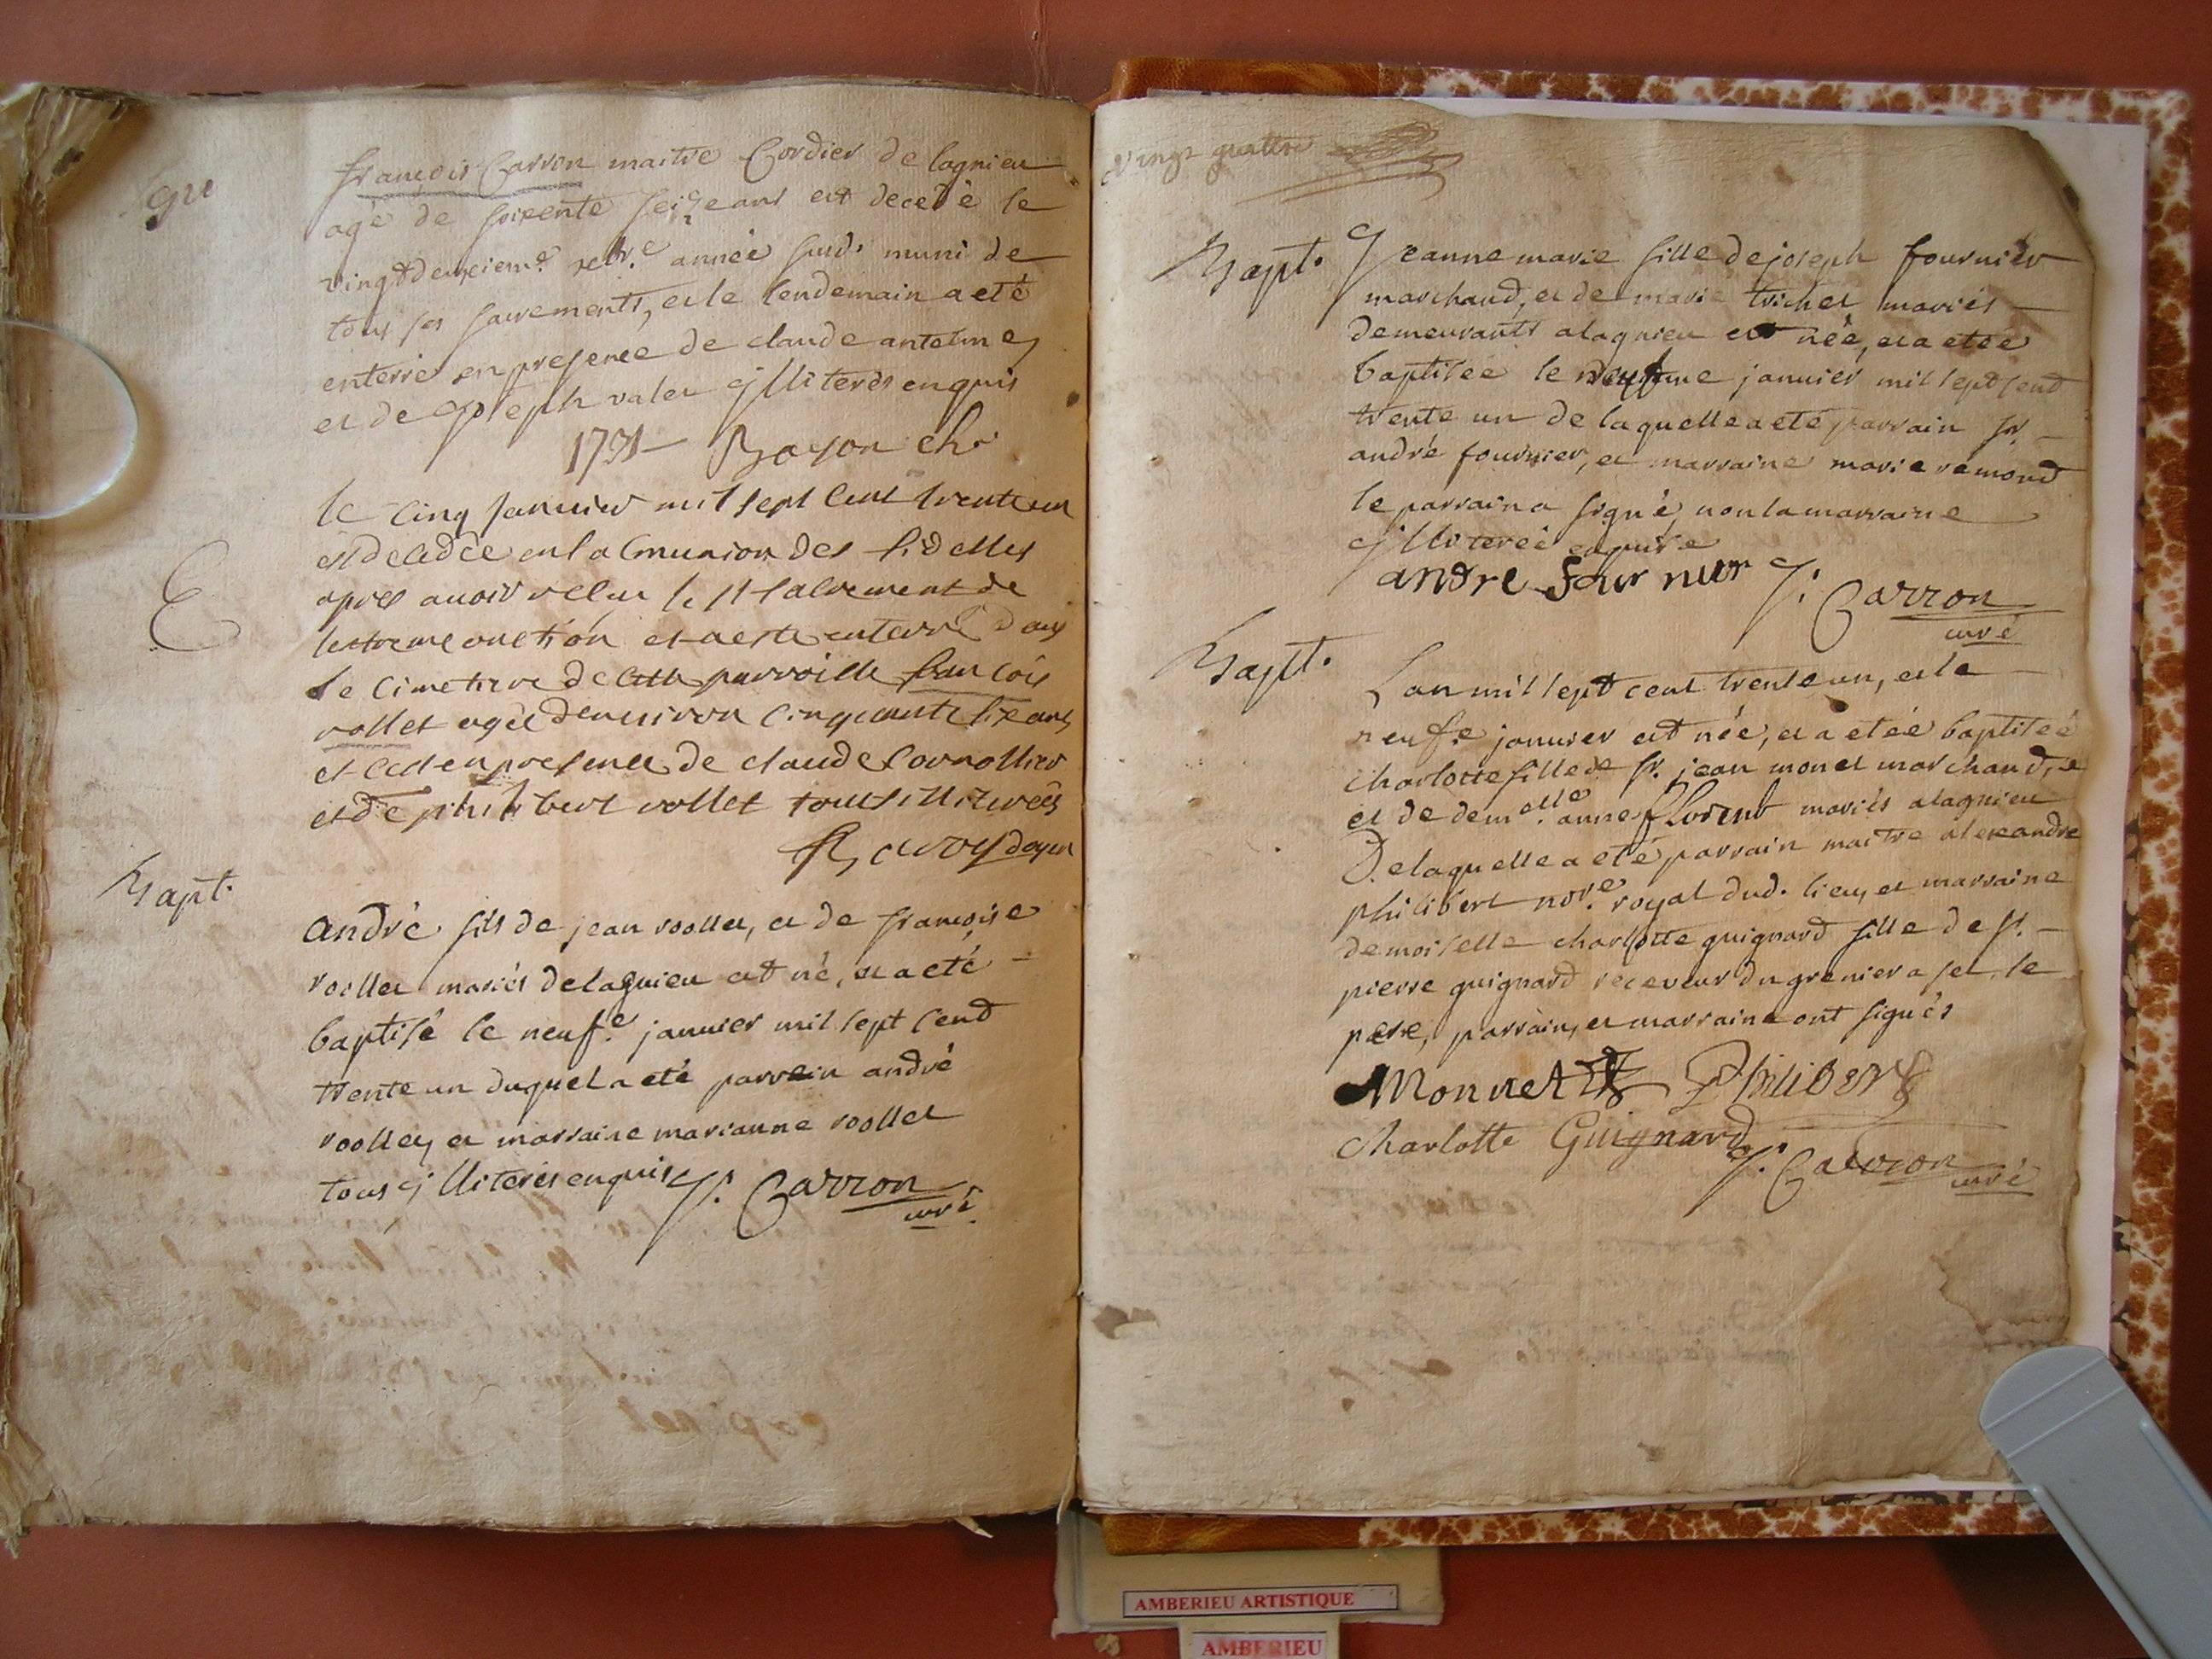 françois Carron maitre Cordier de lagnieu
agé de soixente seize ans est decedé le
vingtdeuxieme. xbr.e année susd. muni de
tous ses sacrements, et le lendemain a eté
enterré en presence de claude antelme
et de joseph valet illiterés enquis
1731 Boyon
le cinq Janvier mil sept cent trente un
est decedée en la Cmunion des fidelles
apres avoir reCeu le st sacrement de
lextreme onction et a esté enterré dans
le cimetiere de cette parroisse francois
rollet agée denviron cinquante six ans
et cest en presence de claude Cornollier
et de philibert rollet tous illiterées
doyen
E
Bapt.
andré fils de jean roollet, et de françoise
roollet mariés de lagnieu est né, et a eté
baptisé le neuf.e janvier mil sept cend
trente un duquel a eté parrein andré
roollet, et marraine marianne roollet
tous illiterés enquis J. Carron
curé
vingt quattre
Bapt. Jeanne marie fille de joseph fournier
marchand, et de marie trichet mariés
demeurants a lagnieu est née, et a etée
baptisée le janvier mil sept cend
trente un de laquelle a eté parrain sr.
andré fournier, et marraine marie rémond
le parrain a signé, non la marraine
illiterée enquise
andre fournier J. Carron
curé
Bapt.
Lan mil sept cent trente un, et le
neuf.e janvier est née, et a etée baptisée
charlotte fille de sr. jean monet marchand,
et de dem.elle anne florent mariés a lagnieu
De laquelle a eté parrain maitre alexandre
philibert no.re royal dud. lieu, et marraine
demoiselle charlotte guignard fille de sr.
pierre guignard receveur du grenier a sel le
pere, parrain, et marraine ont signés
Monnet Philibert
charlotte Guignard
J. Carron
curé
AMBERIEU ARTISTIQUE
AMBERIEU